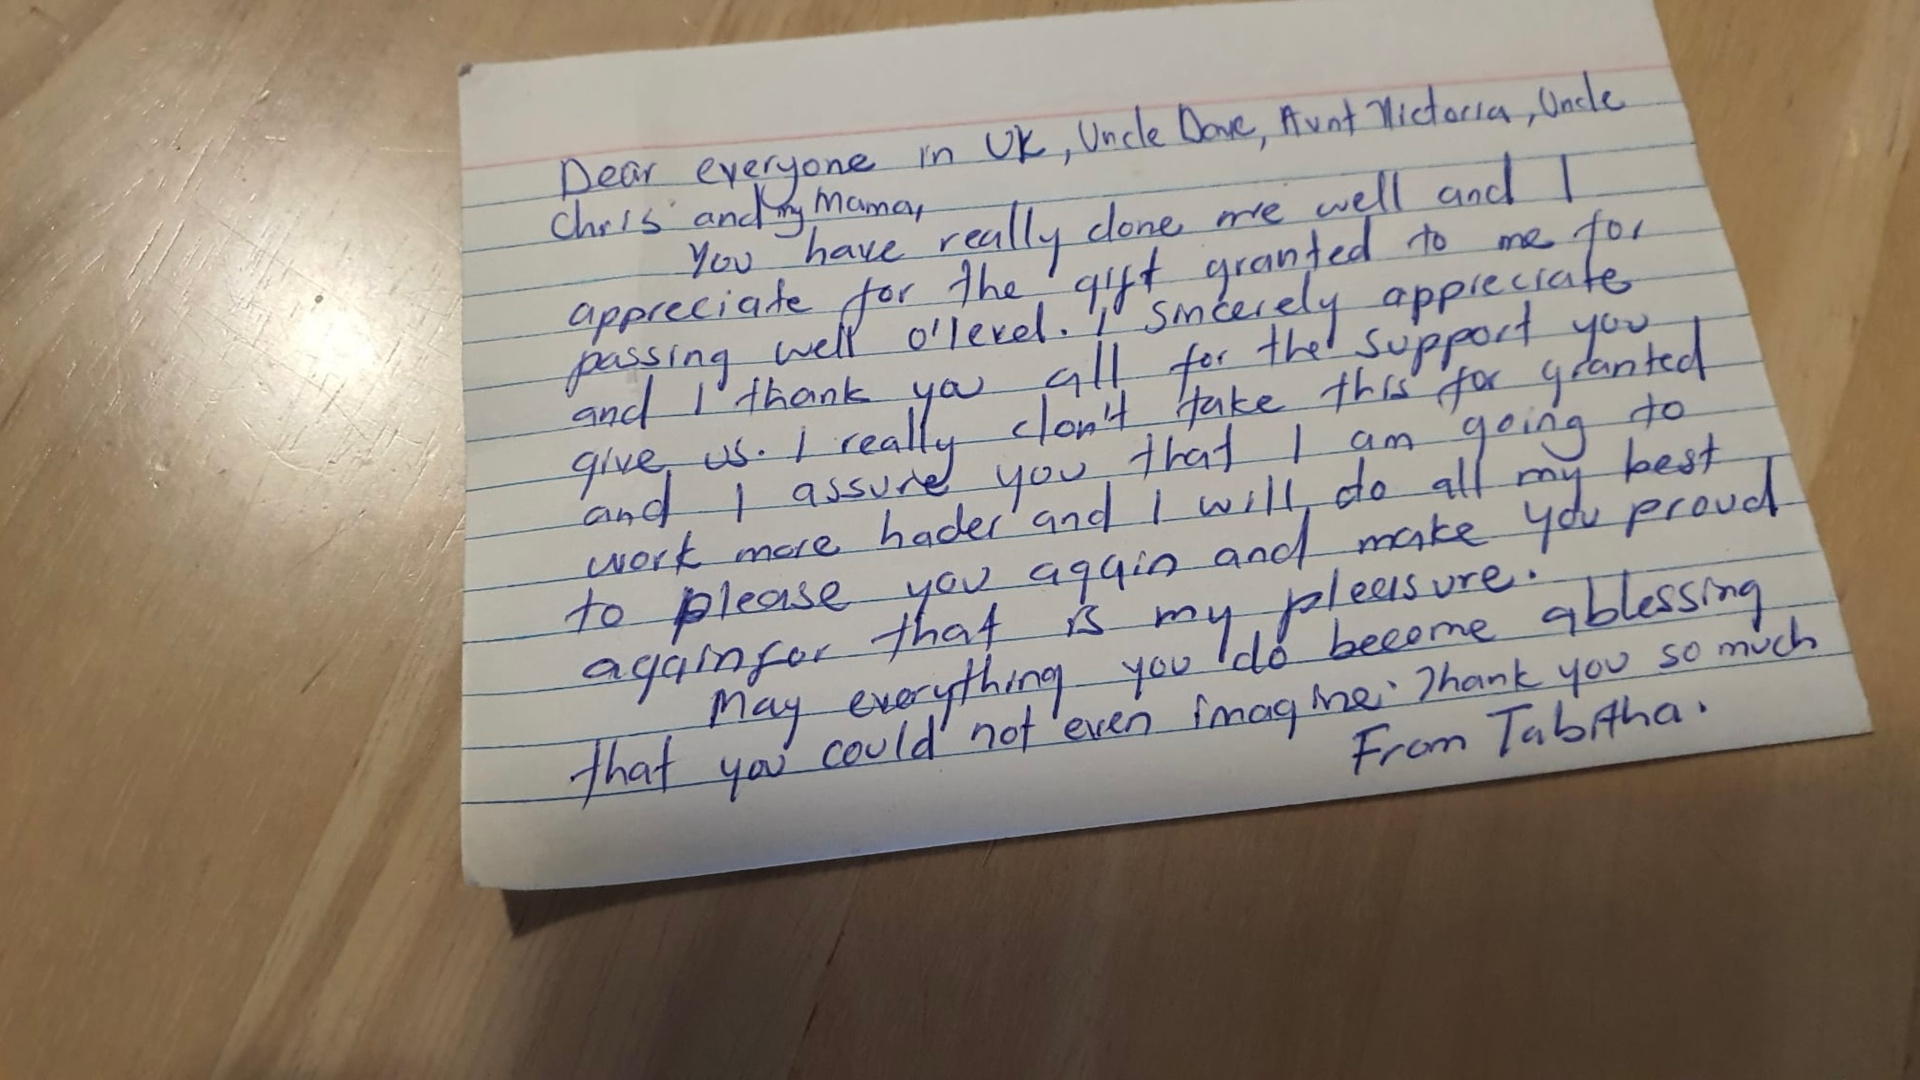 Dear everyone in UK, Uncle Dave, Aunt Victoria, Uncle
Chris and my Mama,
You have really done me well and I
appreciate for the gift granted to me for
passing well o'level. I sincerely appreciate
and I thank you all for the support you
give us. I really don't take this for granted
and I assure you that I am going to
work more hader and I will do all my best
to please you again and make you proud
again for that is my pleasure.
May everything you do become a blessing
that you could not even imagine. Thank you so much
From Tabitha.